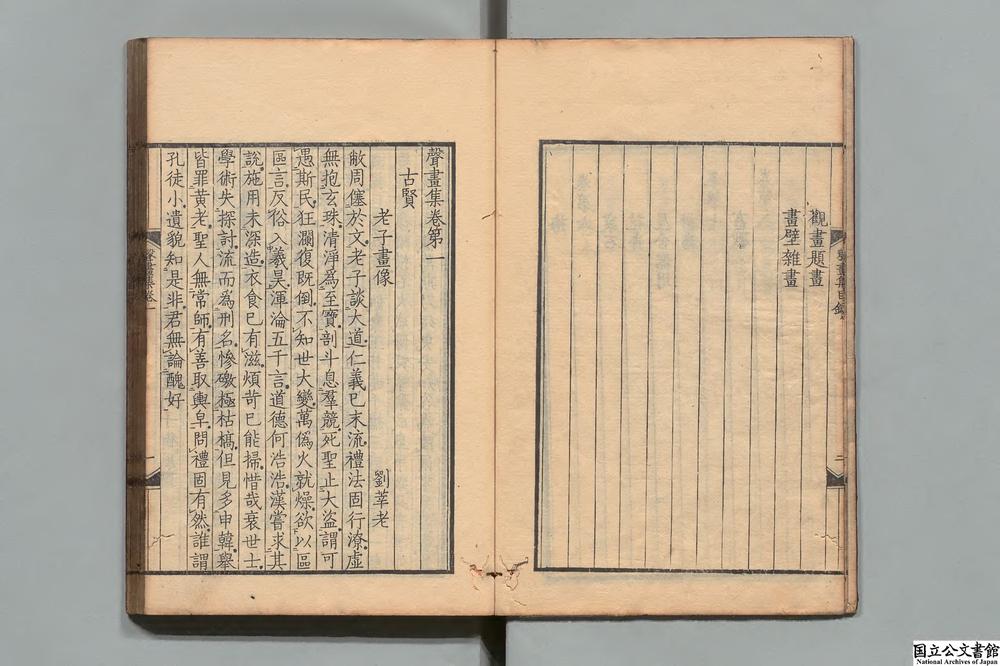 觀畫題畫
畫壁雜畫
聲畫集卷第一
古賢
老子畫像 劉莘老
敝周僿於文老子談大道仁義已末流禮法固行潦虛
無抱玄珠清淨爲至寶剖斗息羣競死聖止大盜謂可
愚斯民狂瀾復既倒不知世大變萬僞火就燥欲以區
區言反俗入羲昊渾淪五千言道德何浩浩漢嘗求其
說施用未深造衣食已有滋煩苛已能掃惜哉衰世士
學術失探討流而爲刑名慘礉極枯槁但見多申韓舉
皆罪黃老聖人無常師有善取輿皁問禮固有然誰謂
孔徒小遺貌知是非君無論醜好
国立公文書館
National Archives of Japan